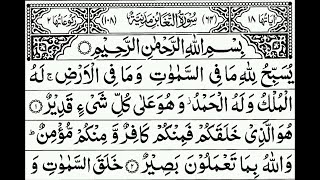 اٰيَاتُهَا ١٨ (٦٤) سُوْرَةُ التَّغَابُنِ مَدَنِيَّةٌ (١٠٨) رُكُوْعَاتُهَا ٢
بِسْمِ اللّٰهِ الرَّحْمٰنِ الرَّحِيْمِ
يُسَبِّحُ لِلّٰهِ مَا فِي السَّمٰوٰتِ وَمَا فِي الْاَرْضِ ۚ لَهُ
الْمُلْكُ وَلَهُ الْحَمْدُ ۫ وَهُوَ عَلٰى كُلِّ شَيْءٍ قَدِيْرٌ ۝١
هُوَ الَّذِيْ خَلَقَكُمْ فَمِنْكُمْ كَافِرٌ وَّمِنْكُمْ مُّؤْمِنٌ ؕ
وَاللّٰهُ بِمَا تَعْمَلُوْنَ بَصِيْرٌ ۝٢ خَلَقَ السَّمٰوٰتِ وَ